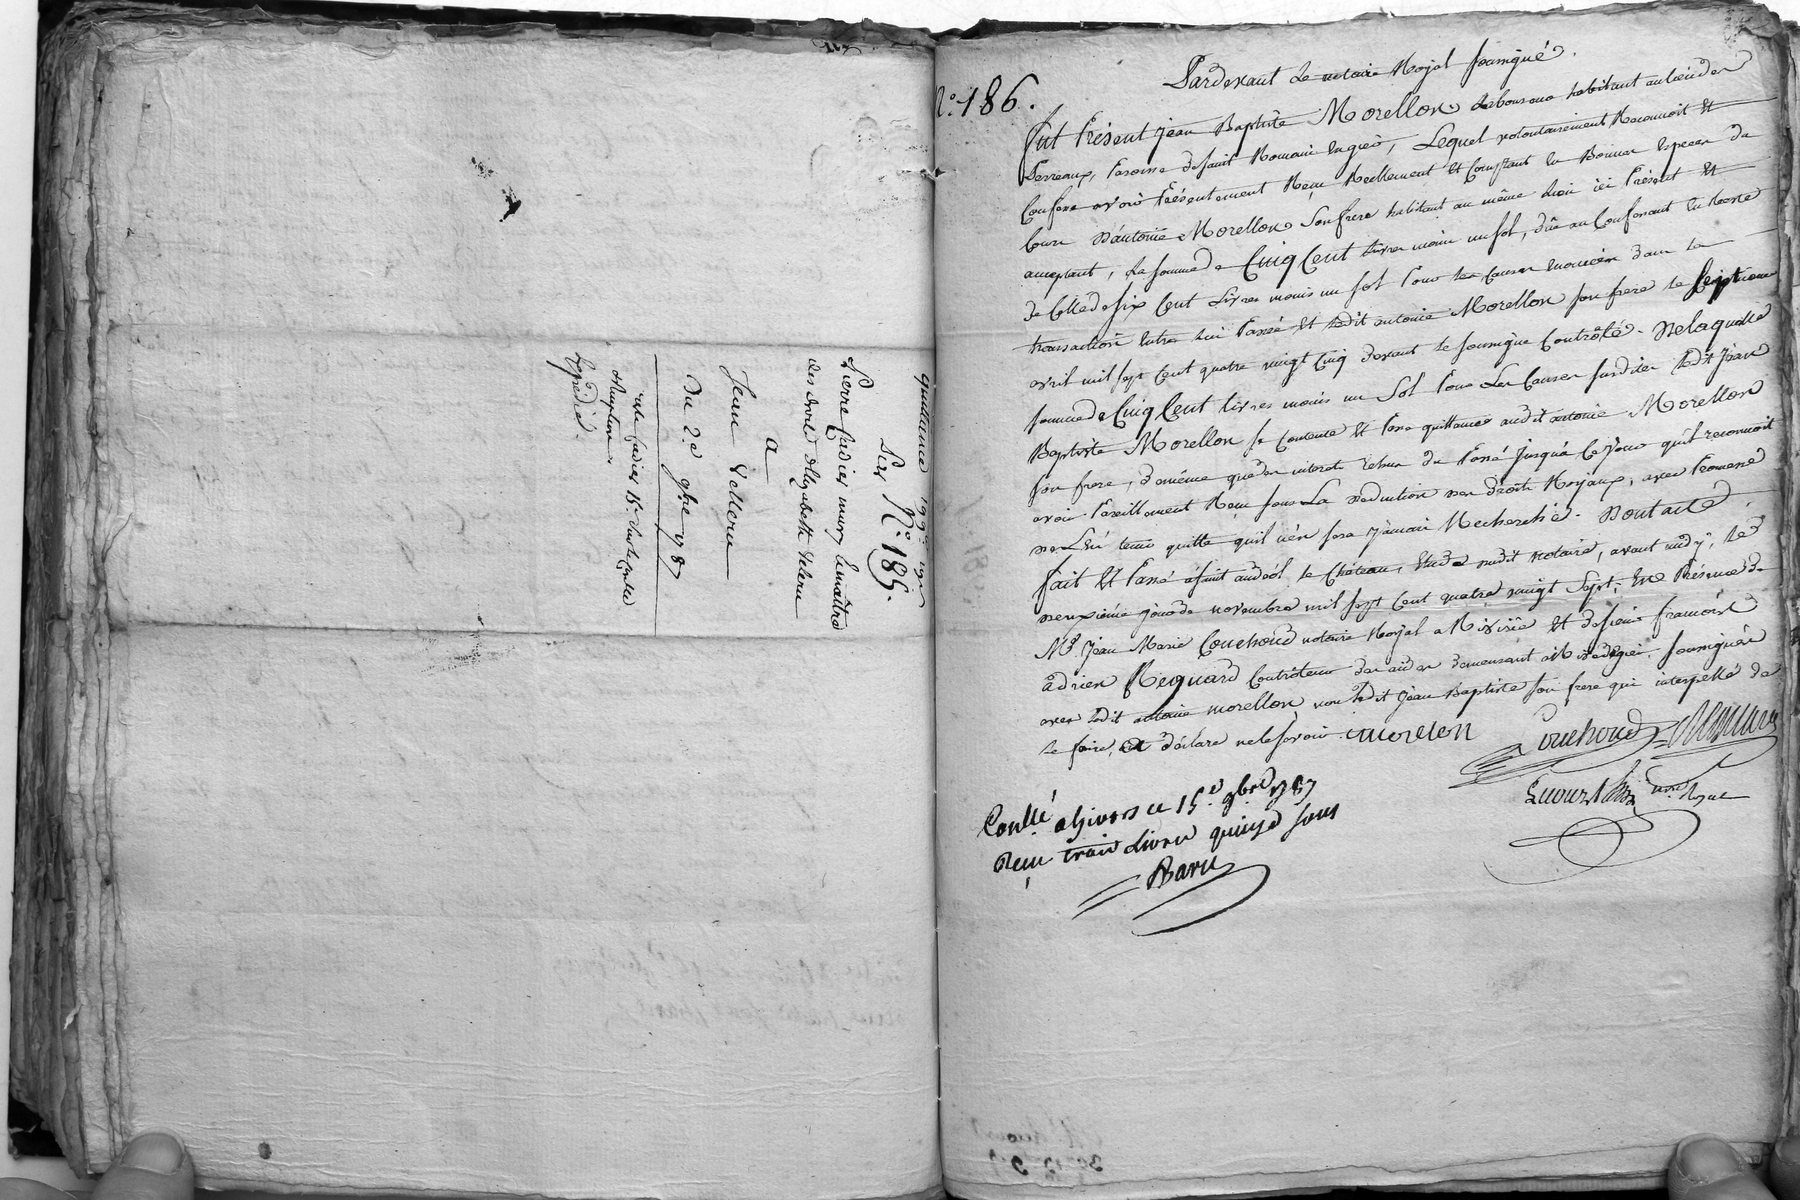 quittance
Par
N.° 185.
Pierre Cadier mary Et maître
des droits d'Elizabeth Velleru
a
Jean Velleru
Du 2.e 9bre 1787
Expédié.
N.° 186.
Pardevant Le notaire Royal soussigné.
Fut Présent Jean Baptiste Morellon Laboureur habitant au lieu des
Perreaux, Paroisse de saint Romain, Lequel volontairement Reconnoit Et
Confesse avoir Présentement Reçu Reellement Et Comptant En Bonnes Especes du
Cours D'antoine Morellon Son frere habitant au même Lieu ici Présent Et
acceptant, La somme de Cinq Cent Livres moins un sol, dûe au Confessant En Reste
de Celle de six Cent Livres moins un sol Pour les Causes Enoncées dans la
transaction Entre lui Passée Et Ledit antoine Morellon son frere le septieme
avril mil sept Cent quatre vingt Cinq devant le soussigné Contrôlée. De laquelle
somme de Cinq Cent livres moins un Sol Pour Les Causes susdites Ledit Jean
Baptiste Morellon se Contente Et Passe quittance audit antoine Morellon
son frere, de même que des interets Echus du Passé jusqu'à Ce Jour qu'il reconnoit
avoir Pareillement Reçu sous La Deduction des droits Royaux, avec Promesse
de L'En tenir quitte quil n'en sera Jamais Recherché. Dont acte
fait Et Passé à saint andéol le Château, Etude dudit notaire, avant midy, le
deuxième jour de novembre mil sept Cent quatre vingt Sept; En Présence de
M.e Jean Marie Couchoud notaire Royal a Et de sieur françois
adrien Regnard Contrôleur des aides demeurant soussignés
avec Ledit antoine morellon, non Ledit Jean Baptiste son frere qui interpellé de
le faire, a déclaré ne le savoir. morelon Couchoud
Contllé a Givors ce 15.e 9bre 1787
Reçu trois Livres quinze sous
Baru